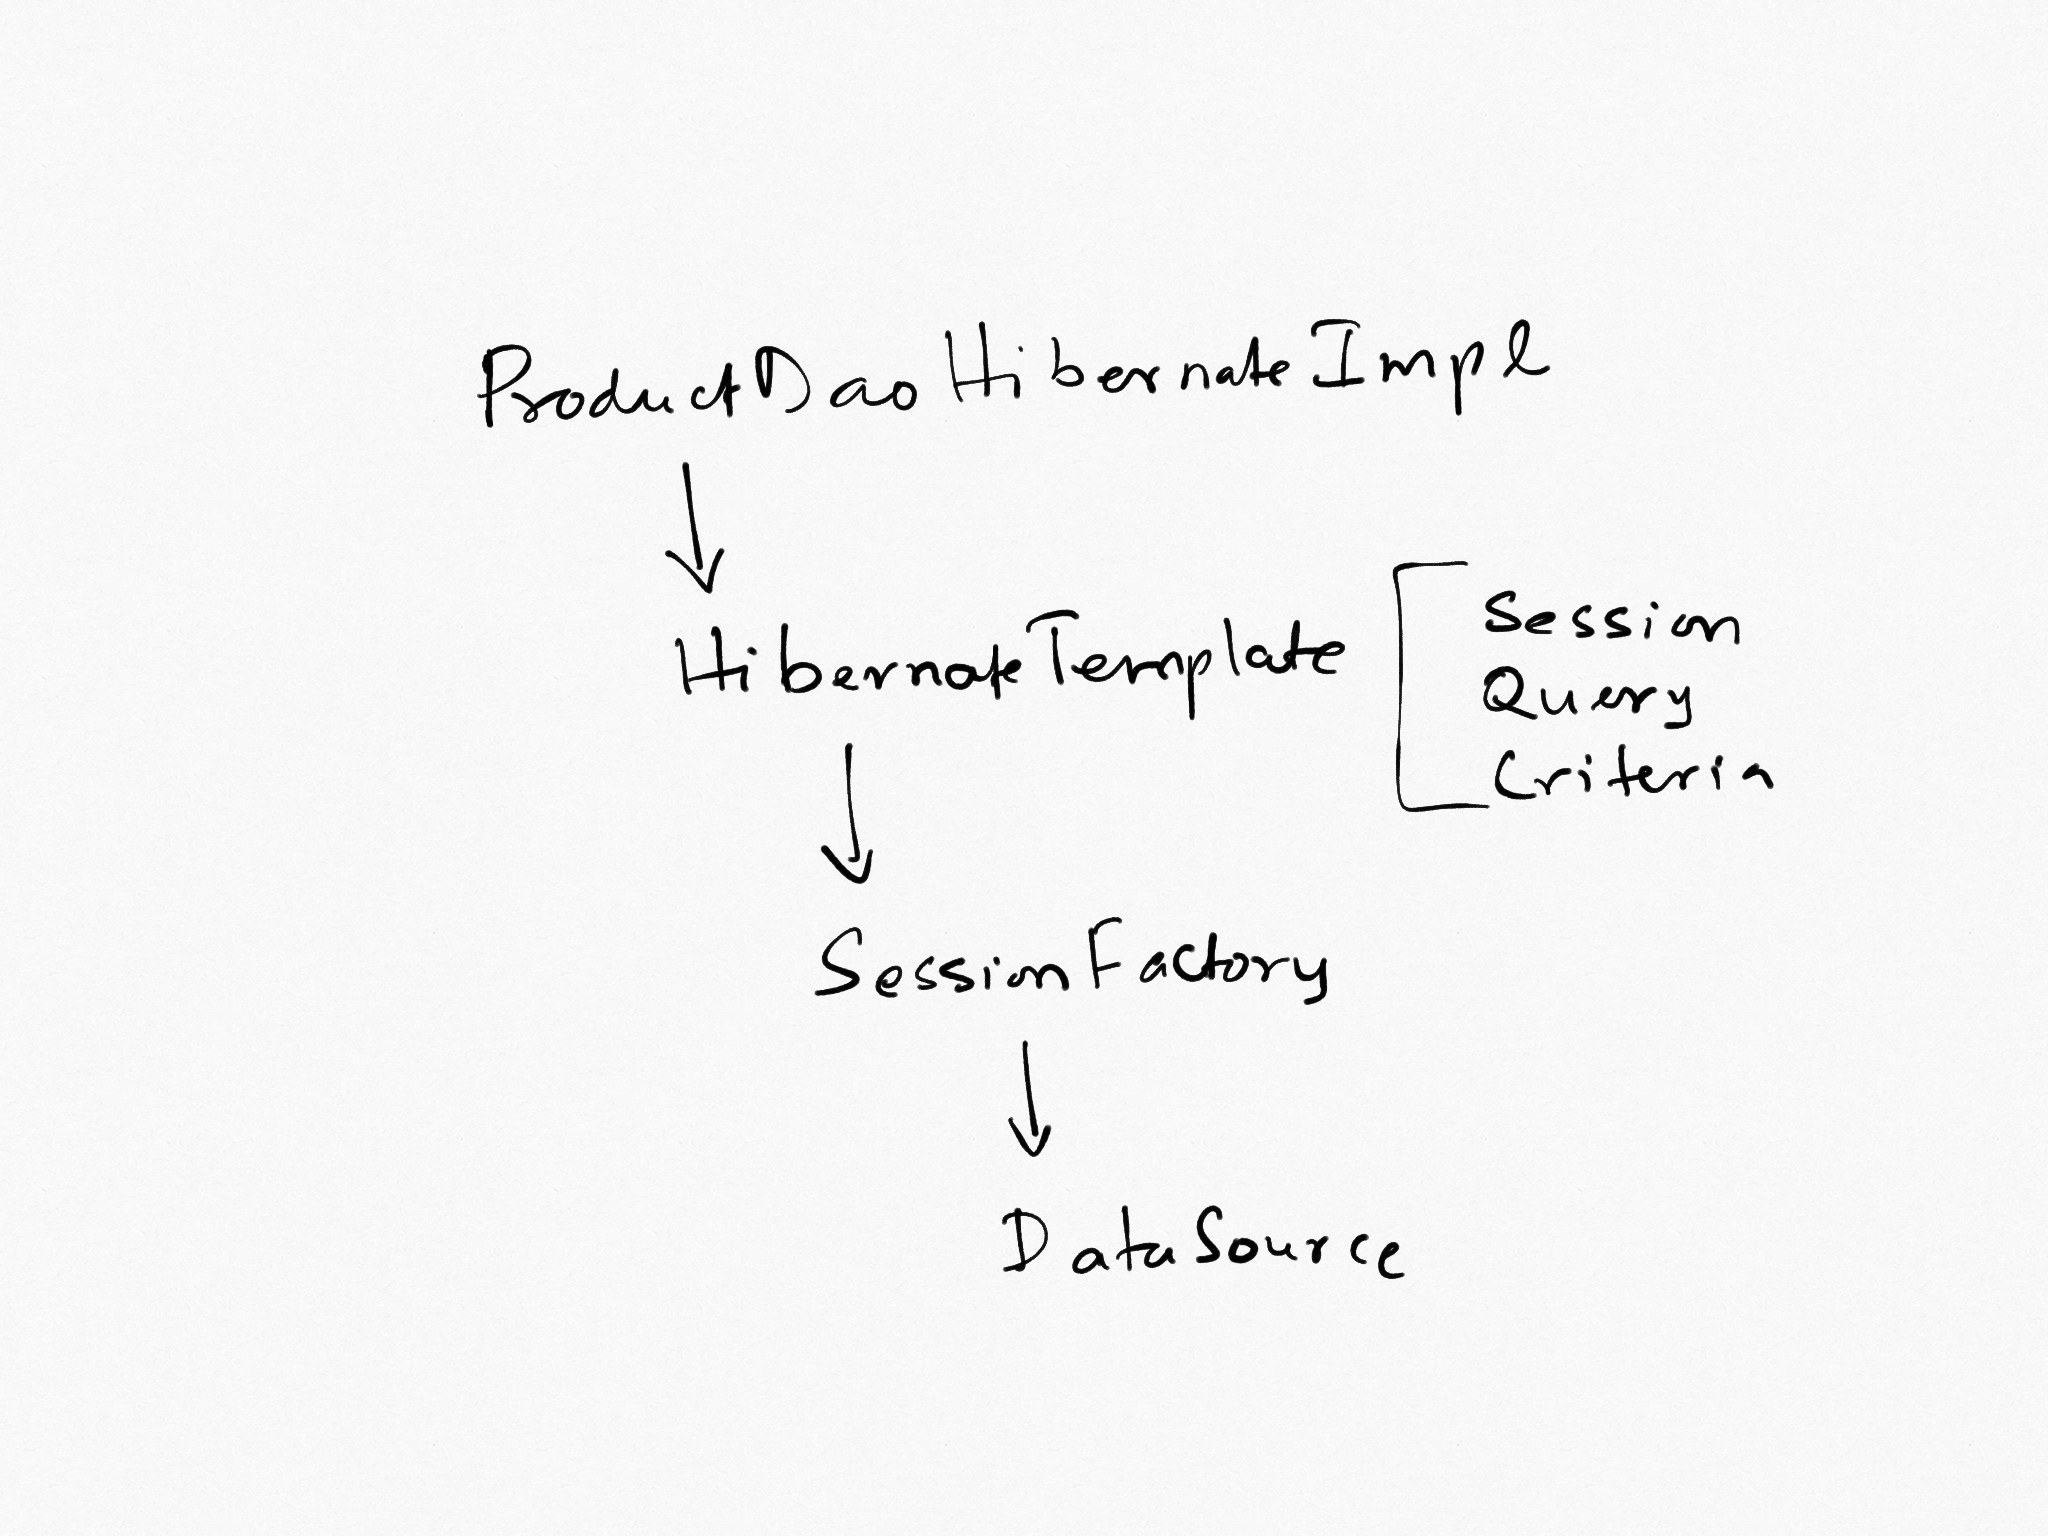 ProductDaoHibernateImpl
HibernateTemplate
Session
Query
Criteria
SessionFactory
DataSource